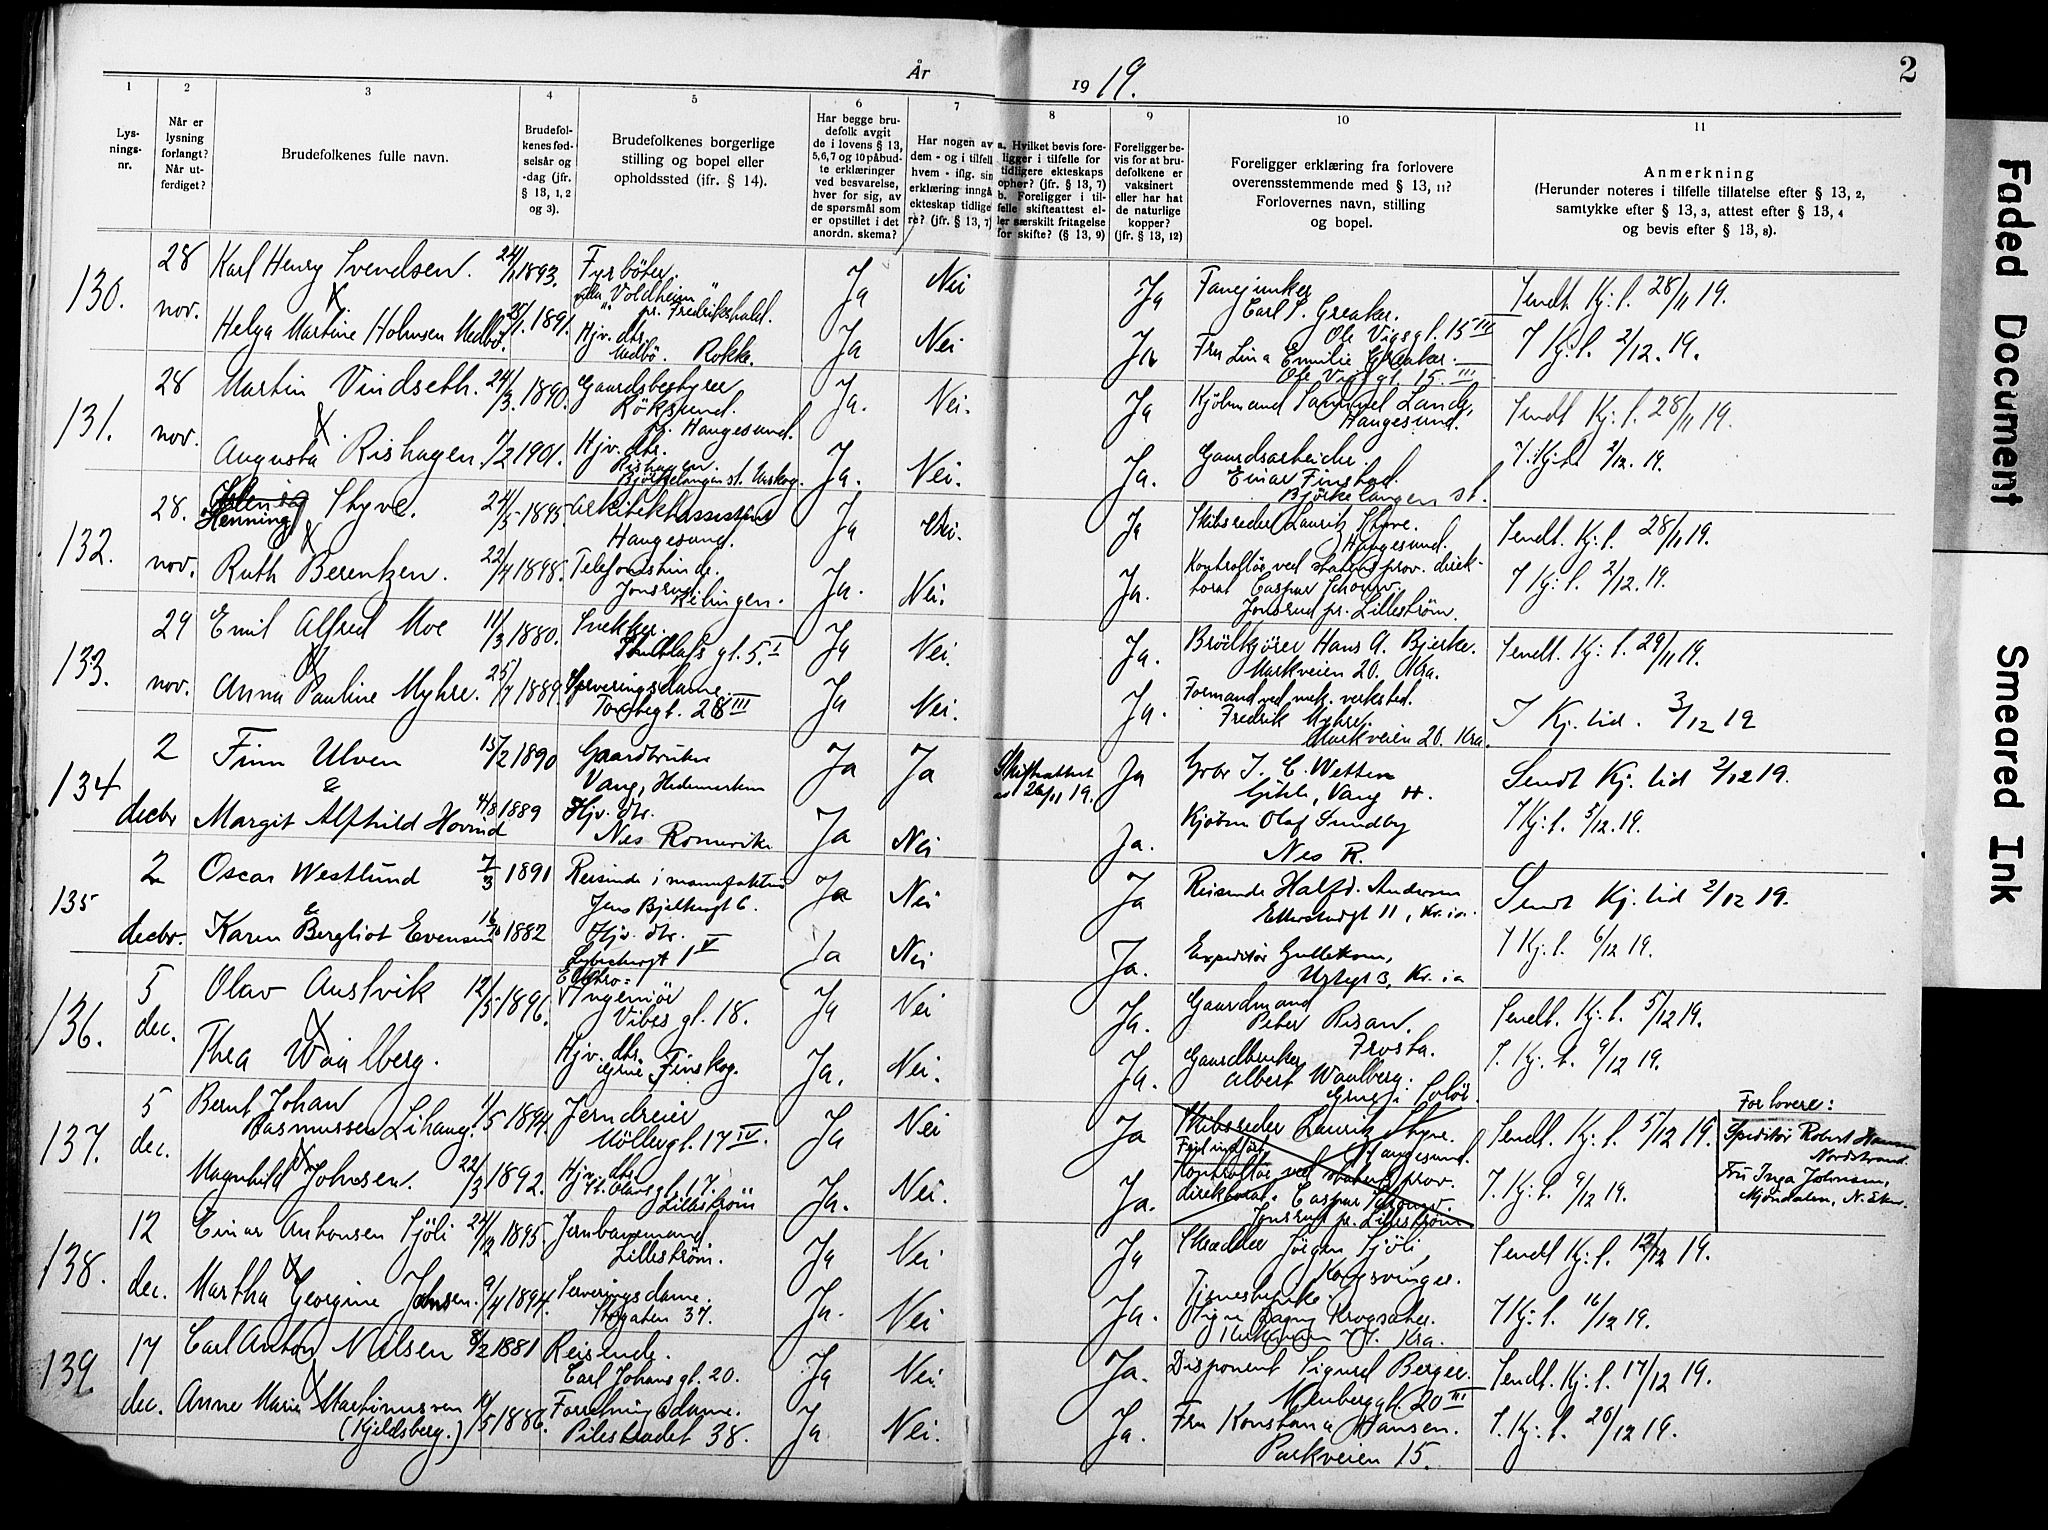 År
19 19.
2
1
2
3
4
5
6
7
8
9
10
11
Lys-
nings-
nr.
Når er
lysning
forlangt?
Når ut-
ferdiget?
Brudefolkenes fulle navn.
Brudefol-
kenes fød-
selsår og
-dag (jfr.
§ 13, 1, 2
og 3).
Brudefolkenes borgerlige
stilling og bopel eller
opholdssted (jfr. § 14).
Har begge bru-
defolk avgit
de i lovens § 13,
5, 6, 7 og 10 påbud-
te erklæringer
ved besvarelse,
hver for sig, av
de spørsmål som
er opstillet i det
anordn. skema?
Har nogen av
dem - og i tilfelle
hvem - iflg. sin
erklæring inngå
ekteskap tidlige
re? (jfr. § 13, 7)
a. Hvilket bevis fore-
ligger i tilfelle for
tidligere ekteskaps
ophør? (jfr. § 13, 7)
b. Foreligger i til-
felle skifteattest el-
ler særskilt fritagelse
for skifte? (§ 13, 9)
Foreligger be-
vis for at bru-
defolkene er
vaksinert
eller har hat
de naturlige
kopper?
(jfr. § 13, 12)
Foreligger erklæring fra forlovere
overensstemmende med § 13, 11?
Forlovernes navn, stilling
og bopel.
Anmerkning
(Herunder noteres i tilfelle tillatelse efter § 13, 2,
samtykke efter § 13, 3, attest efter § 13, 4
og bevis efter § 13, 8).
130.
28 nov.
Karl Henry Svendsen. 24/11 1893. Fyrbøter.
"Voldheim" pr. Fredrikshald. Ja Nei Ja
Fanejunker
Carl S. Greaker.
Ole Vigsgt. 15 III
Sendt Kj. l. 28/11 19.
Helga Martine Holmsen Medbø. 25/1. 1891. Hjv. dtr.
Medbö. Rokke. Ja Nei Ja
Fru Lina Emilie Greaker.
Ole Vigsgt. 15. III
I Kj. l. 2/12. 19.
131.
28 nov.
Martin Vindseth. 24/3. 1890. Gaardsbestyrer
Röksund.
pr. Haugesund. Ja. Nei. Ja
Kjöbmand Samuel Lande,
Haugesund.
Sendt Kj. l. 28/11 19.
Augusta Rishagen. 7/2 1901. Hjv. dtr.
Rishagen.
Björkelangen st. Urskog. Ja. Nei. Ja.
Gaardsarbeider.
Einar Finstad.
Björkelangen st.
I. Kj. l. 2/12. 19.
132.
28. nov.
Henning Styve. 24/5 1895. Arkitektassistent
Haugesund. Ja Nei. Ja
Skibsreder Lauritz Styve.
Haugesund.
Sendt. Kj. l. 28/11 19.
Ruth Berentzen. 22/4 1898. Telefonistinde.
Jonsrud
Rælingen. Ja. Nei. Ja.
Kontrollör ved statens prov. direk-
torat Caspar Schouw.
Jonsrud pr. Lilleström.
I Kj. l. 2/12. 19.
133.
29 nov.
Emil Alfred Moe 11/3 1880. Snekker.
St. Olafs gt. 5. I Ja Nei. Ja.
Brödkjörer Hans A. Bjerke.
Markveien 20. Kra.
Sendt. Kj. l. 29/11 19.
Anna Pauline Myhre. 25/7 1889. Serveringsdame.
Torvbygt. 28 III Ja Nei. Ja.
Formand ved mek. verksted.
Fredrik Myhre.
Markveien 20. Kra.
I Kj. tid. 3/12 19
134
2 decbr
Finn Ulven 15/2 1890 Gaardbruker
Vang, Hedemarken Ja Ja
Skifteattest
av 26/11 19. Ja
Gbr I. C. Wetten
Vang H.
Sendt Kj. tid 2/12 19.
&
Margit Alfhild Hovind 4/8 1889 Hjv. dtr.
Nes Romerike Ja Nei Ja.
Kjøbm Olaf Sundby
Nes R.
I Kj. l. 5/12. 19.
135
2 decbr.
Oscar Westlund 7/3 1891 Reisende i manufaktur
Jens Bjelkesgt 6. Ja Nei Ja
Reisende Halfd. Andersen
Etterstadgt 11, Kr. ia.
Sendt Kj. tid 2/12 19.
&
Karen Bergliot Evensen 16/10 1882 Hjv. dtr.
Lybeckergt 1 V Ja Nei Ja.
Expeditør Gulleksen,
Urtegt 3, Kr. ia
I Kj. l. 6/12 19.
136.
5 dec.
Olav Austvik 12/5 1896. Elektro=
Ingeniør
Vibes gt. 18. Ja Nei Ja.
Gaardmand
Peter Risan.
Frosta.
Sendt. Kj. l. 5/12 19.
Thea Waalberg. Hjv. dtr.
Grue Finskog. Ja. Nei. Ja.
Gaardbruker
Albert Waalberg.
Grue i Solör.
I. Kj. l. 9/12 19.
137.
5 dec.
Bernt Johan
Rasmussen Lihaug. 11/5 1894. Jerndreier
Möllergt. 17 IV. Ja Nei Ja
Skibsreder Lauritz Styve.
Feil indført, Haugesund.
Sendt. Kj. l. 5/12 19.
Forlovere:
Speditør Robert Hansen
Nordstrand.
Magnhild Johnsen. 22/3 1892. Hjv. dtr.
St. Olavsgt. 7.
Lilleström Ja. Nei. Ja.
Kontrollör ved statens prov.
direktorat. Caspar Schouw.
Jonsrud pr. Lilleström
I. Kj. l. 9/12 19.
Fru Inga Johnsen,
Mjöndalen, N. Eker.
138.
12 dec.
Einar Antonsen Sjöli 24/12 1895. Jernbanemand
Lilleström. Ja Nei Ja
Skrædder Jörgen Sjöli,
Kongsvinger.
Sendt Kj. l. 12/12 19.
Martha Georgine Johnsen. 9/4 1894. Serveringsdame.
Storgaten 37. Ja. Nei Ja.
Tjenestepike.
Signe Krogsæter.
Kra.
I Kj. l. 16/12 19.
139.
17 dec.
Carl Anton Nilsen 8/2 1881 Reisende.
Carl Johans gt. 20. Ja Nei. Ja.
Disponent Sigurd Berger.
Neuberggt. 20 III
Sendt. Kj. l. 17/12 19.
Anne Marie Martinussen
(Kjeldsberg.) 14/5 1886. Forretningsdame.
Pilestrædet 38. Ja Nei. Ja.
Fru Konstance Hansen.
Parkveien 15.
I. Kj. l. 20/12 19.
Faded Document
Smeared Ink